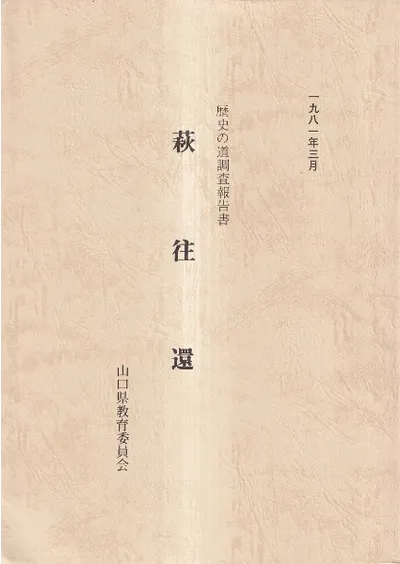 一九八一年三月
歴史の道調査報告書
萩往還
山口県教育委員会